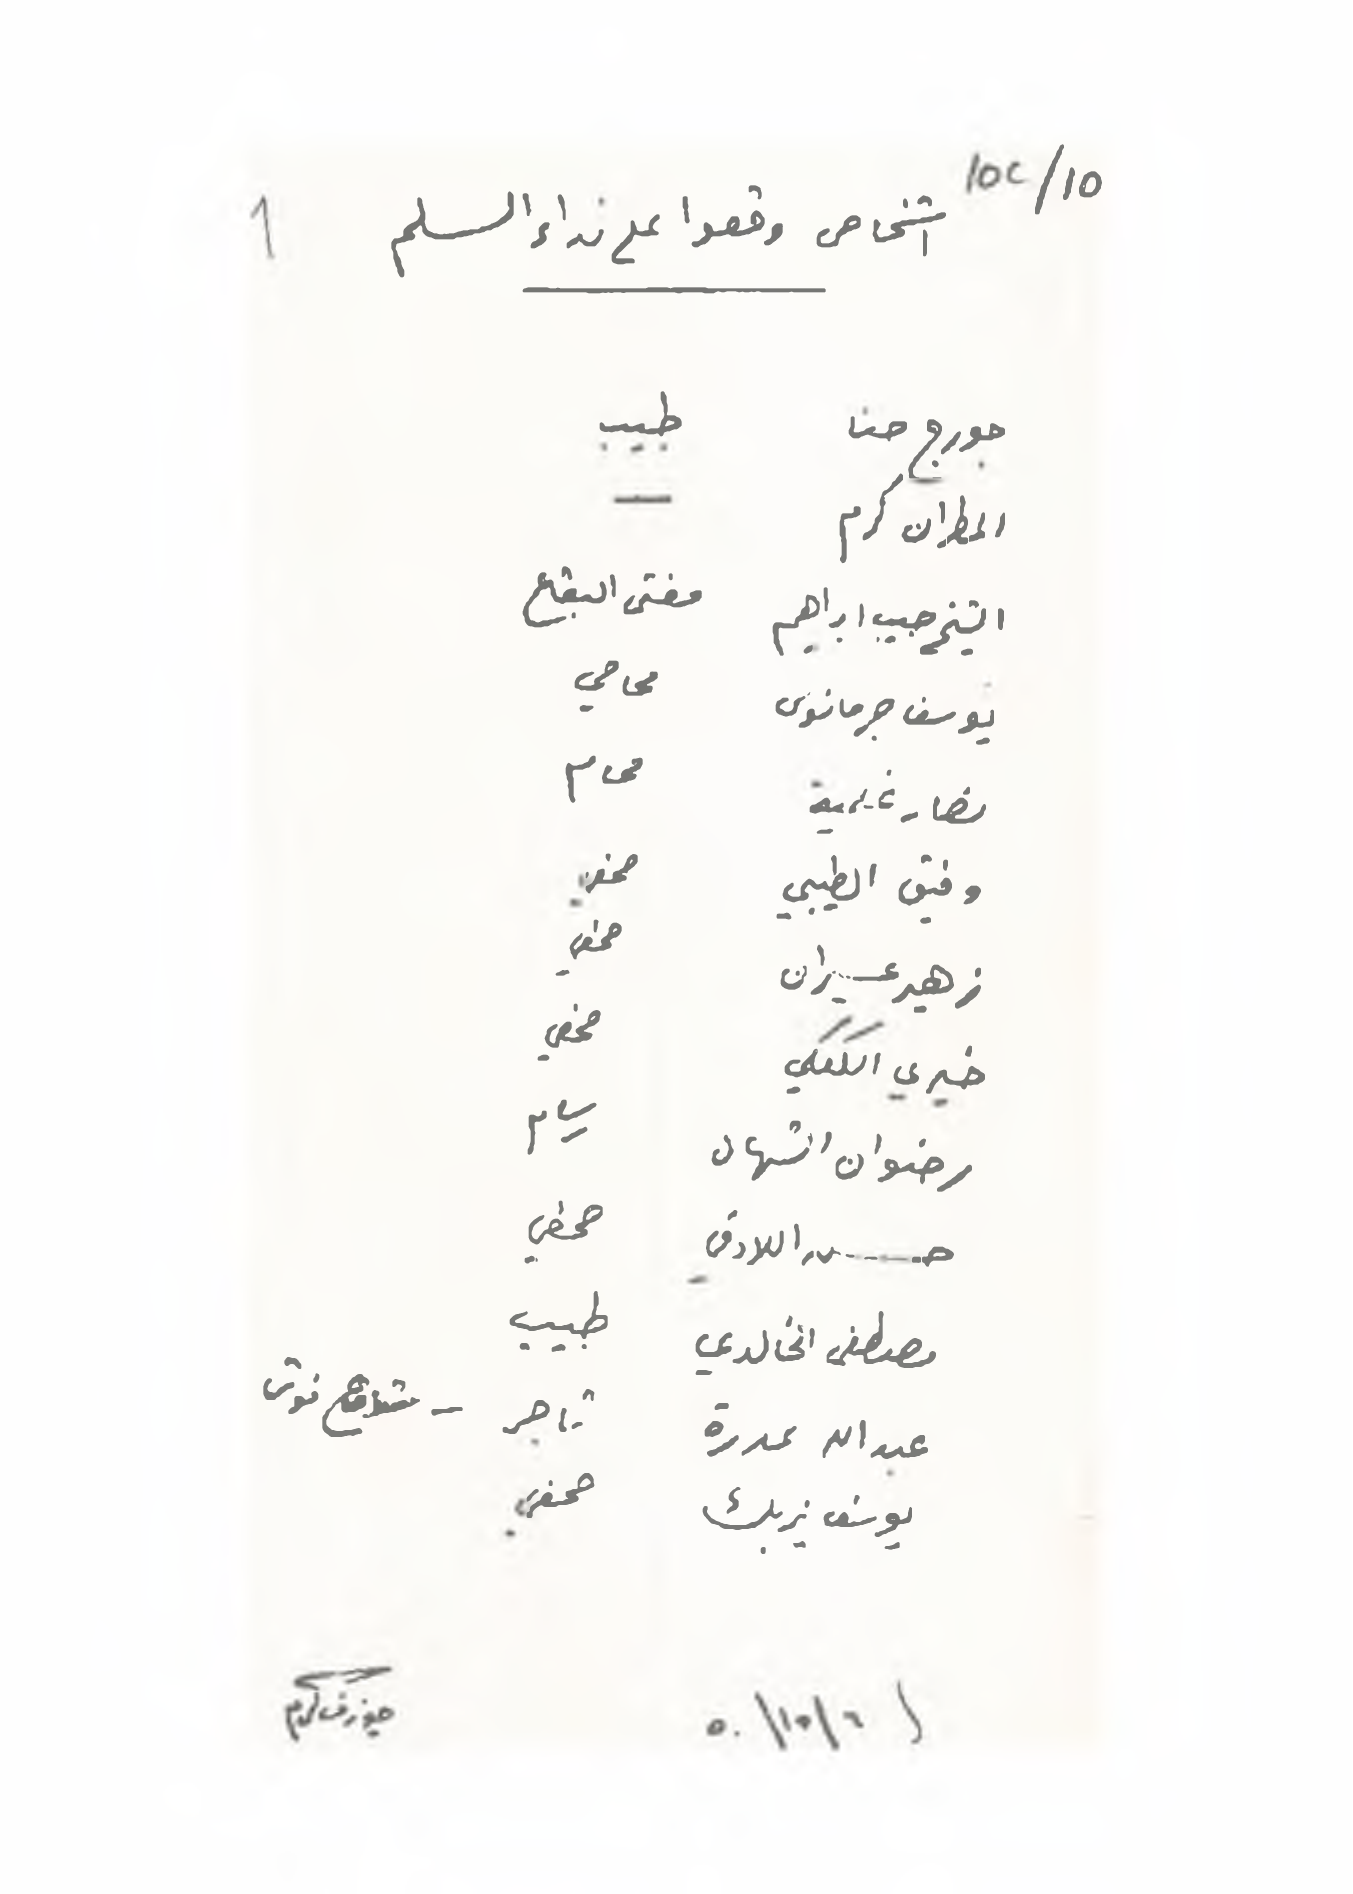 10c/10
اشخاص وقعوا على نداء السلم
1
جورج حنا طبيب
المطران كرم —
الشيخ حبيب ابراهيم مفتي البقاع
يوسف جرمانوس محامي
نضار غلمية محام
وفيق الطيبي صحفي
زهير عسيران صحفي
خيري الكعكي صحفي
رضوان الشهال رسام
حسن اللادقي صحفي
مصطفى الخالدي طبيب
عبدالله عدرة تاجر —
يوسف يزبك صحفي
جوزف كرم